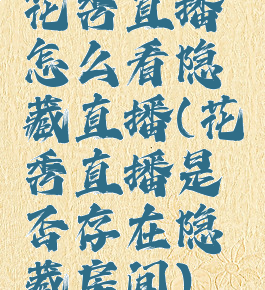 花秀直播
怎么看隐
藏直播(花
秀直播是
否存在隐
藏房间)